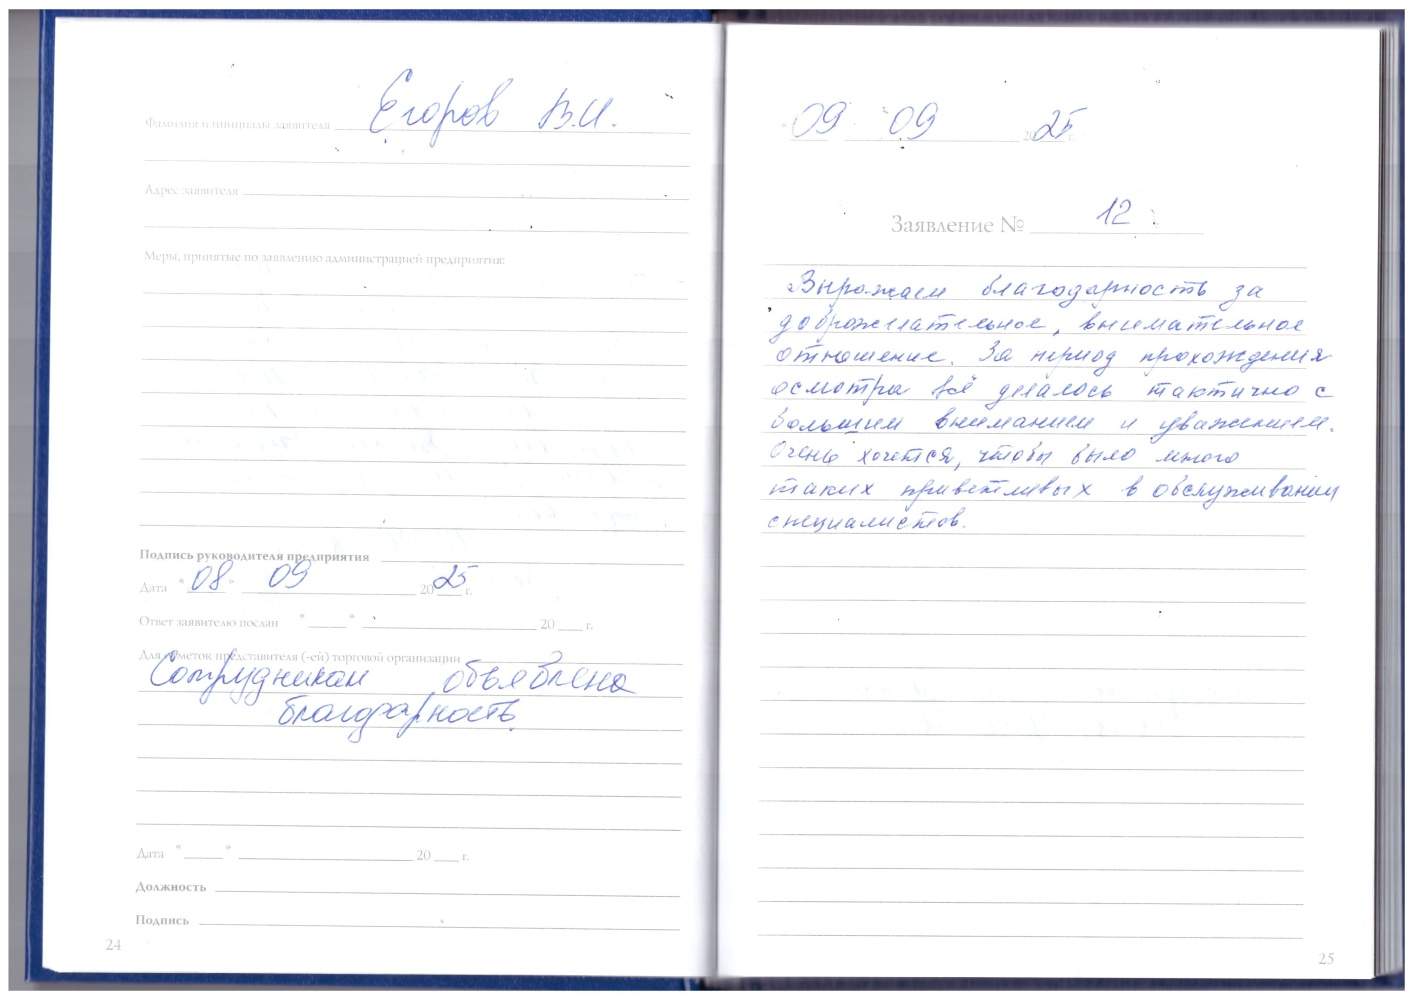 Фамилия и инициалы заявителя Егоров В.И.
Адрес заявителя
Меры, принятые по заявлению администрацией предприятия:
Подпись руководителя предприятия
Дата "08" 09 2025 г.
Ответ заявителю послан " " 20 г.
Для отметок представителя (-ей) торговой организации
Сотрудникам объявлена
благодарность.
Дата " " 20 г.
Должность
Подпись
24
"09" 09 2025 г.
Заявление № 12
Выражаем благодарность за
доброжелательное, внимательное
отношение. За период прохождения
осмотра всё делалось тактично с
большим вниманием и уважением.
Очень хочется, чтобы было много
таких приветливых в обслуживании
специалистов.
25